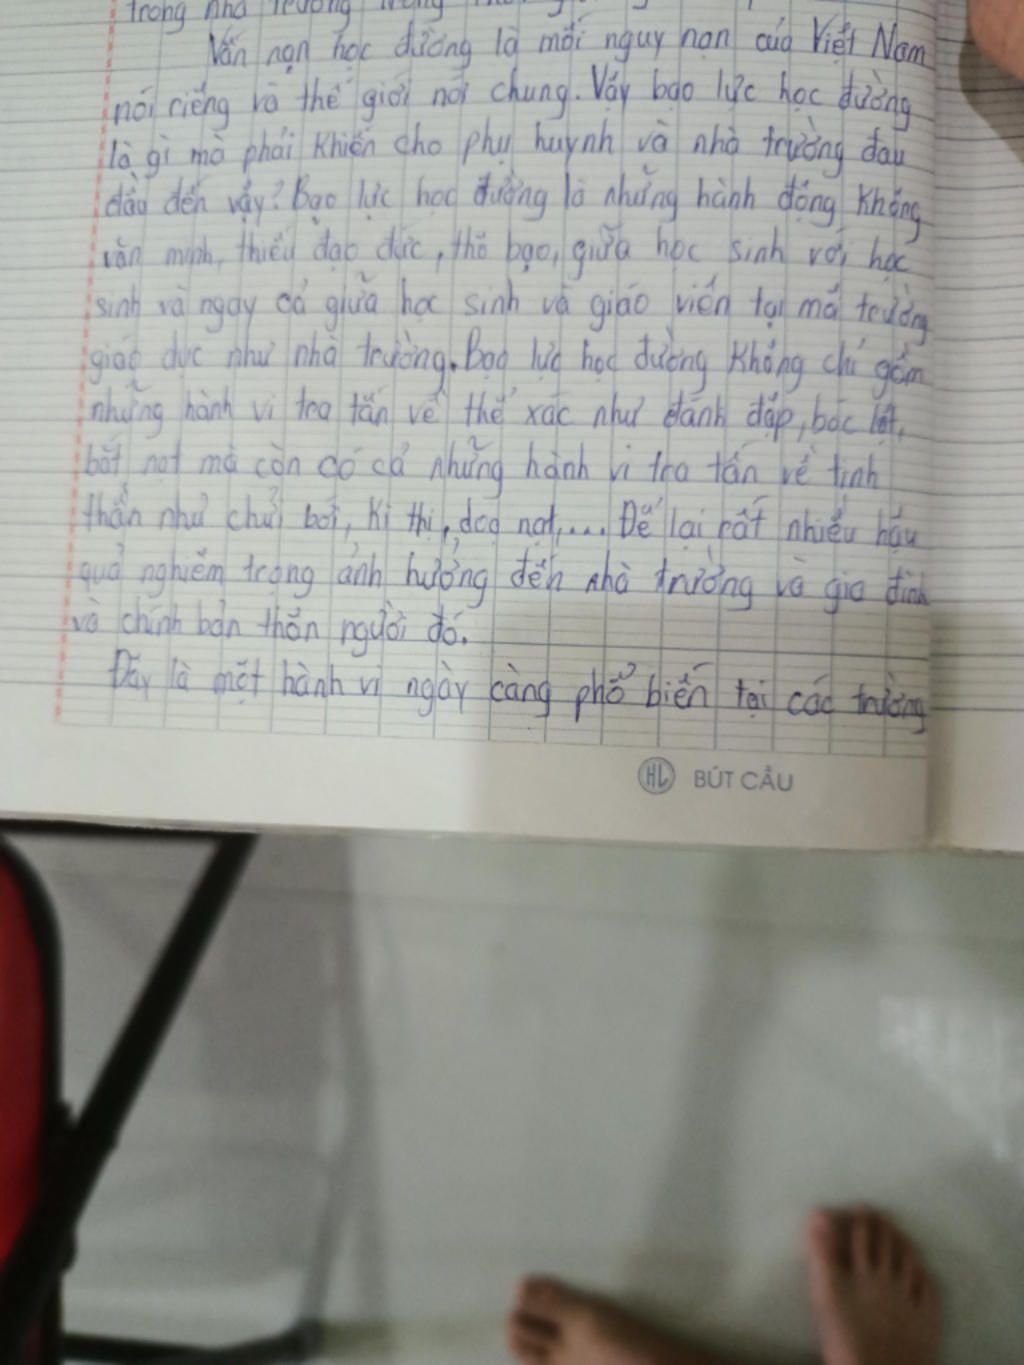 trong nhà trường
Vấn nạn học đường là mối nguy nan của Việt Nam
nói riêng và thế giới nói chung. Vậy bạo lực học đường
là gì mà phải khiến cho phụ huynh và nhà trường đau
đầu đến vậy? Bạo lực học đường là những hành động không
văn minh, thiếu đạo đức, thô bạo, giữa học sinh với học
sinh và ngay cả giữa học sinh và giáo viên tại mô trường
giáo dục như nhà trường. Bạo lực học đường không chỉ gồm
những hành vi tra tấn về thể xác như đánh đập, bóc lột,
bắt nạt mà còn có cả những hành vi tra tấn về tinh
thần như chửi bới, kì thị, dọa nạt,... Để lại rất nhiều hậu
quả nghiêm trọng ảnh hưởng đến nhà trường và gia đình
và chính bản thân người đó.
Đây là một hành vi ngày càng phổ biến tại các trường
HL BÚT CẦU